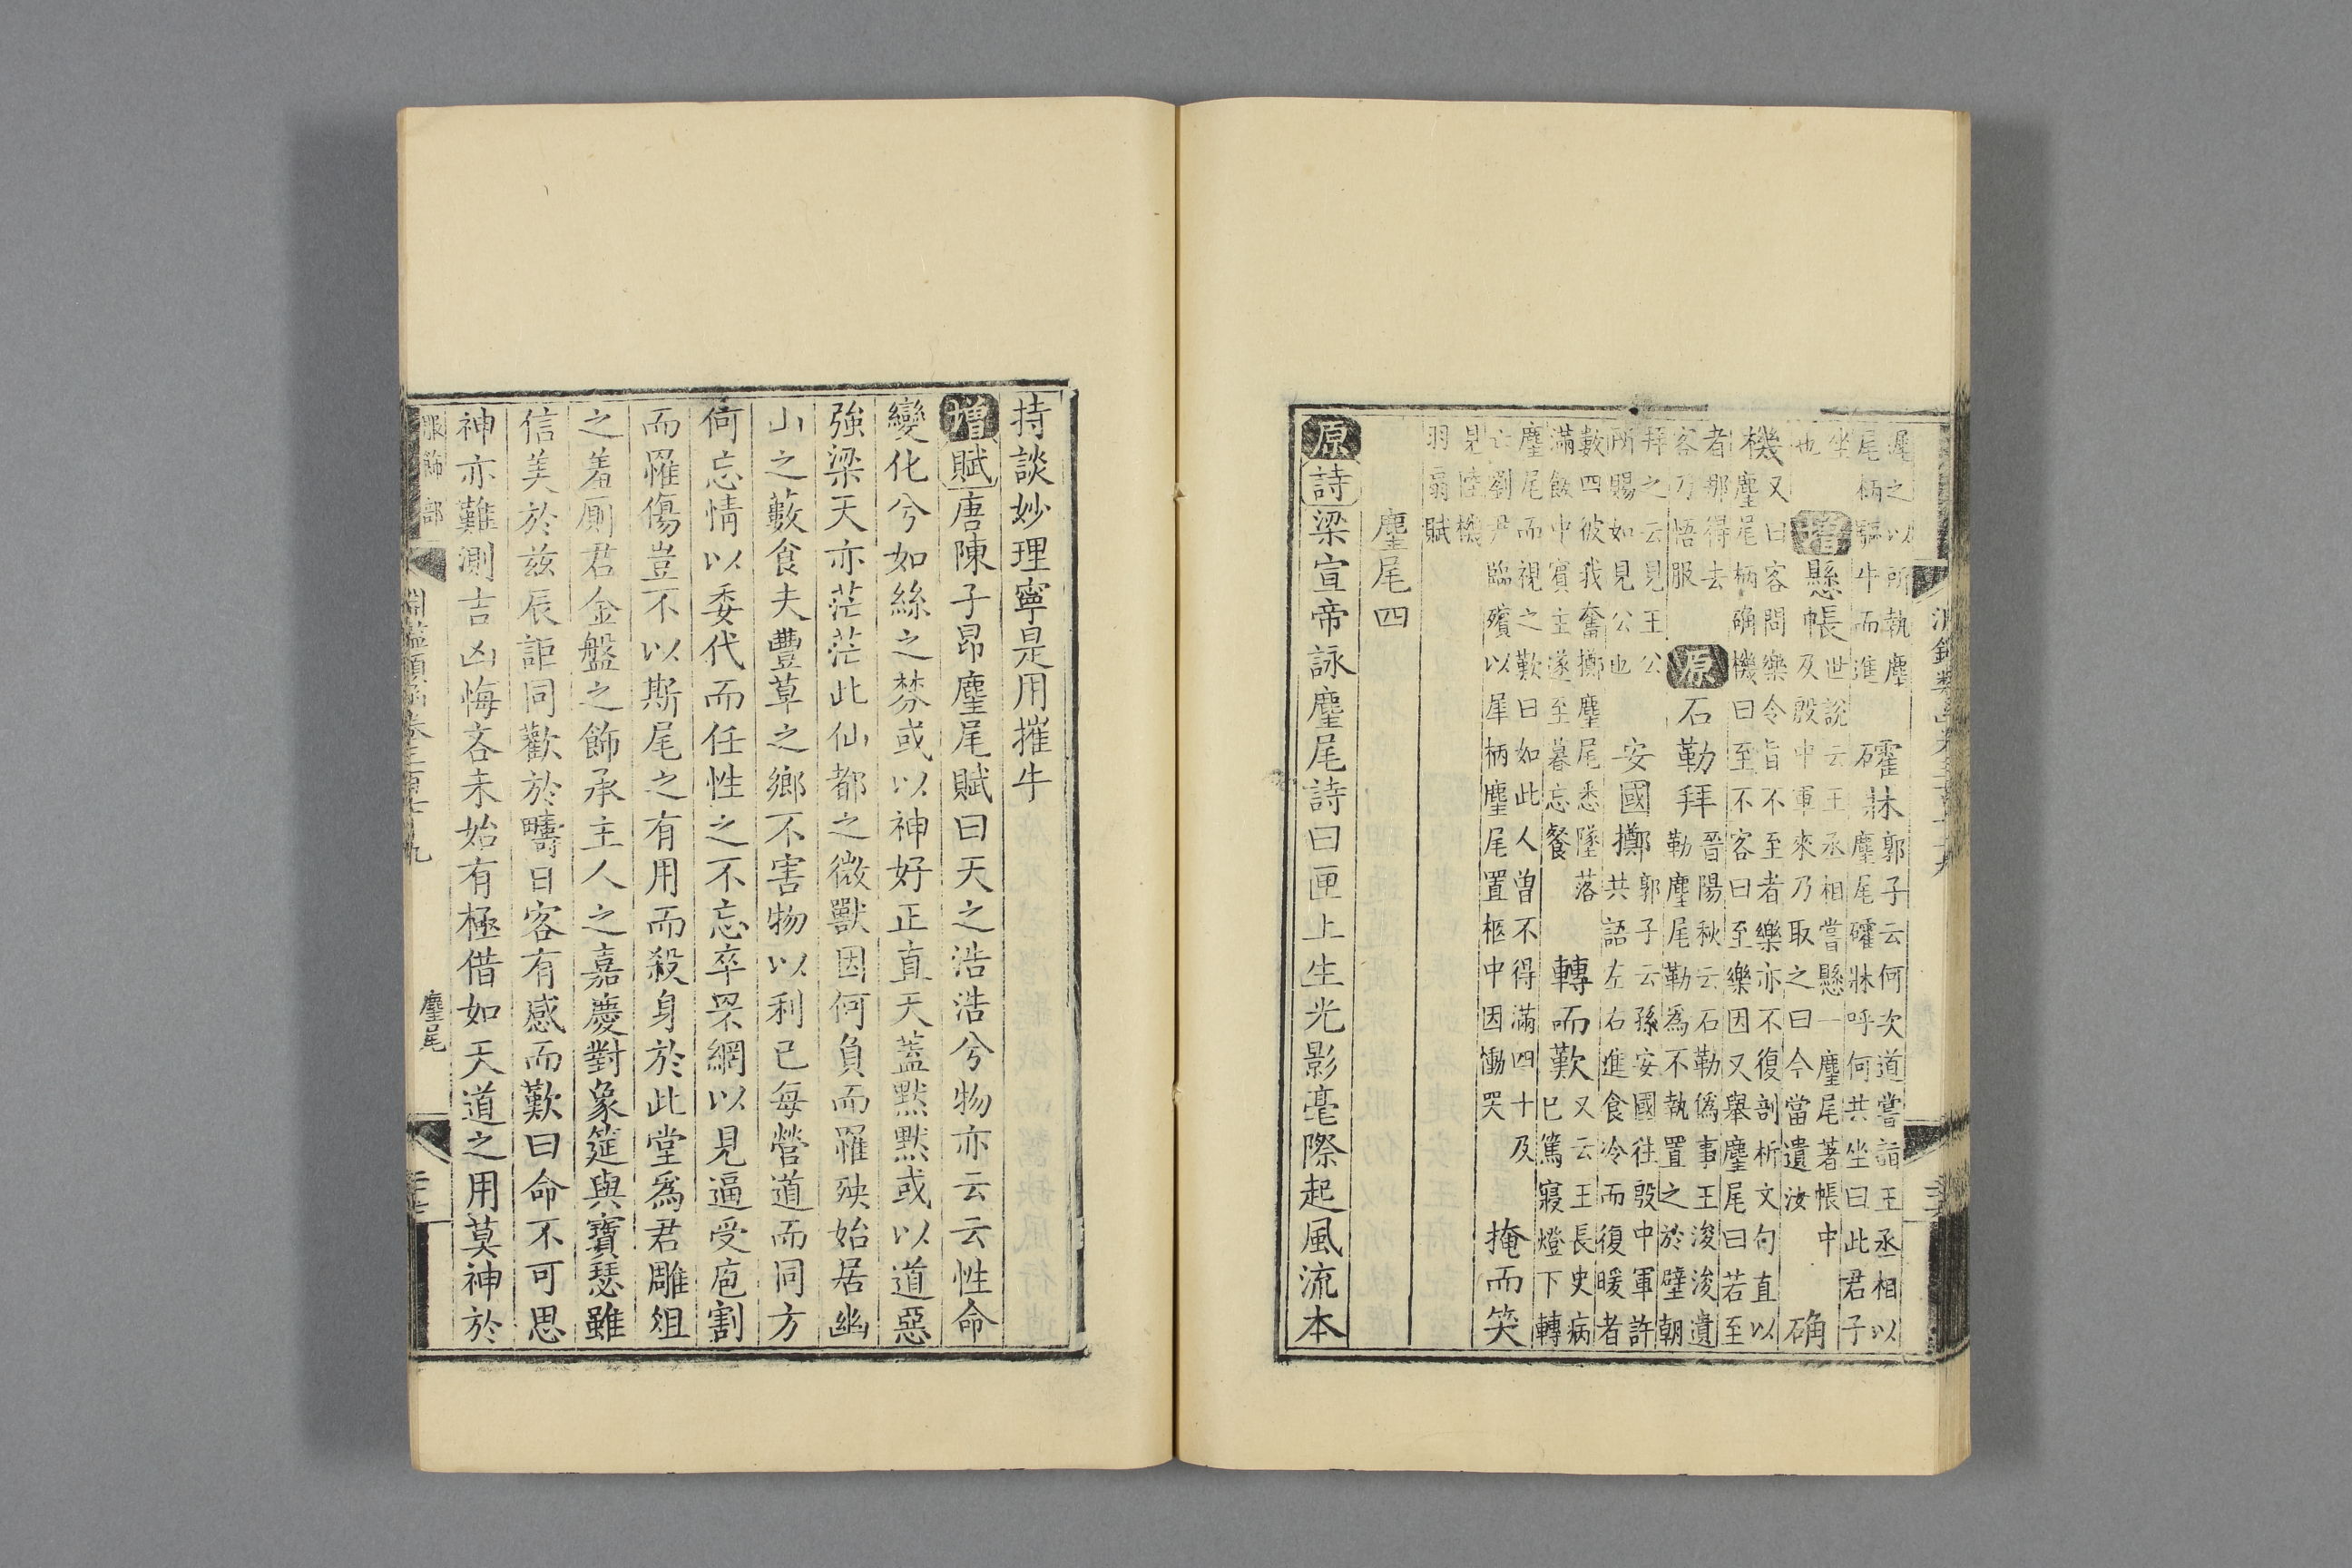 遲之以所執麈
尾柄驅牛而進
礭牀
郭子云何次道嘗詣王丞相以
麈尾礭牀呼何共坐曰此君子
坐
也
增懸帳
世說云王丞相嘗懸一麈尾著帳中
及殷中軍來乃取之曰今當遺汝
确
機
又曰客問樂令旨不至者樂亦不復剖析文句直以
麈尾柄确機曰至不客曰至樂因又舉麈尾曰若至
者那得去
客乃悟服
原石勒拜
晉陽秋云石勒僞事王浚浚遺
勒麈尾勒爲不執置之於壁朝
拜之云見王公
所賜如見公也
安國擲
郭子云孫安國往殷中軍許
共語左右進食冷而復暖者
數四彼我奮擲麈尾悉墜落
滿飯中賓主遂至暮忘餐
轉而歎
又云王長史病
已篤寢燈下轉
麈尾而視之歎曰如此人曾不得滿四十及
亡劉尹臨殯以犀柄麈尾置柩中因慟哭
掩而笑
見陸機
羽扇賦
麈尾四
原詩梁宣帝詠麈尾詩曰匣上生光影毫際起風流本
持談妙理寧是用摧牛
增賦唐陳子昂麈尾賦曰天之浩浩兮物亦云云性命
變化兮如絲之棼或以神好正直天蓋默默或以道惡
強梁天亦茫茫此仙都之微獸因何負而罹殃始居幽
山之藪食夫豐草之鄉不害物以利己每營道而同方
何忘情以委代而任性之不忘卒罘網以見逼受庖割
而罹傷豈不以斯尾之有用而殺身於此堂爲君雕俎
之羞廁君金盤之飾承主人之嘉慶對象筵與寶瑟雖
信美於兹辰詎同歡於疇日客有感而歎曰命不可思
神亦難測吉凶悔吝未始有極借如天道之用莫神於
服飾部 淵鑑類函卷三百七十九 麈尾